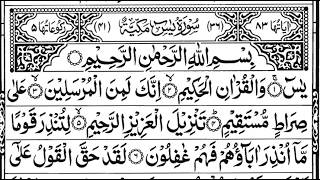 اٰیَاتُهَا ٨٣ (٣٦) سُوْرَةُ يٰسٓ مَكِّيَّةٌ (٤١) رُكُوْعَاتُهَا ٥
بِسْمِ اللّٰهِ الرَّحْمٰنِ الرَّحِيْمِ
يٰسٓ ۚ﴿١﴾ وَالْقُرْاٰنِ الْحَكِيْمِ ۙ﴿٢﴾ اِنَّكَ لَمِنَ الْمُرْسَلِيْنَ ۙ﴿٣﴾ عَلٰى
صِرَاطٍ مُّسْتَقِيْمٍ ؕ﴿٤﴾ تَنْزِيْلَ الْعَزِيْزِ الرَّحِيْمِ ۙ﴿٥﴾ لِتُنْذِرَ قَوْمًا
مَّاۤ اُنْذِرَ اٰبَآؤُهُمْ فَهُمْ غٰفِلُوْنَ ﴿٦﴾ لَقَدْ حَقَّ الْقَوْلُ عَلٰٓى